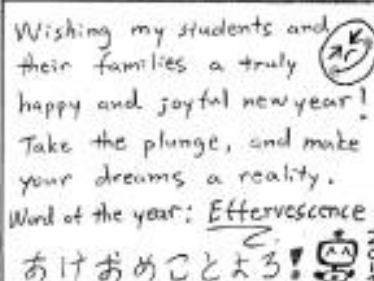 Wishing my students and
their families a truly
happy and joyful new year!
Take the plunge, and make
your dreams a reality.
Word of the year: Effervescence
あけおめことよろ!